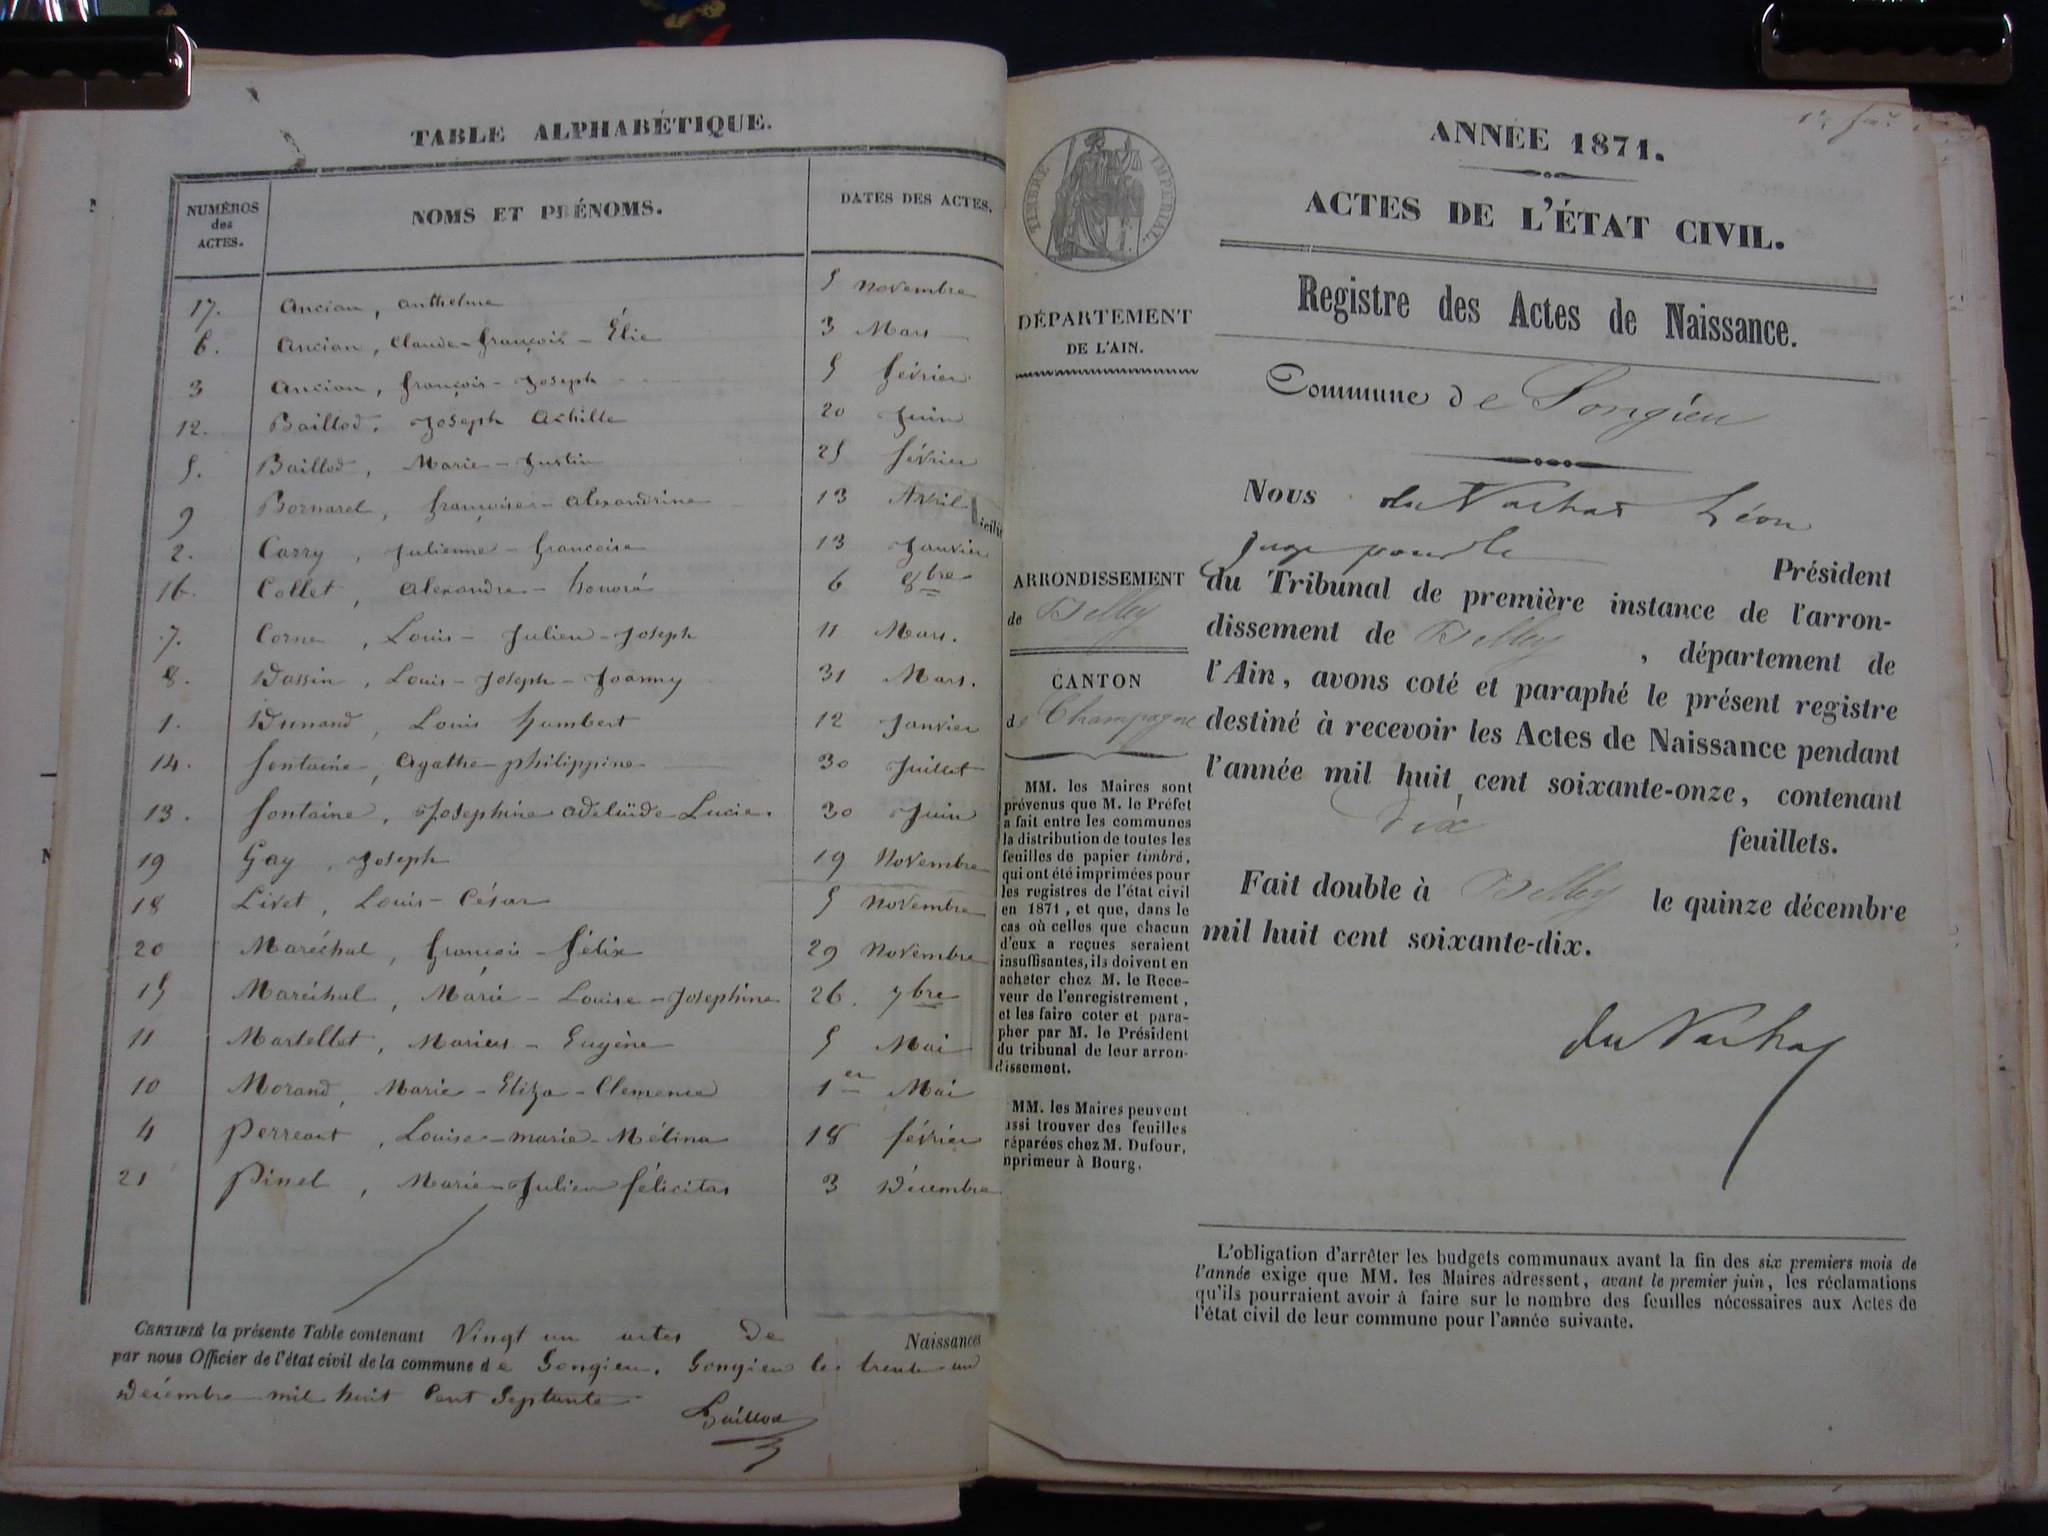 TABLE ALPHABÉTIQUE.
NUMÉROS des ACTES. NOMS ET PRÉNOMS. DATES DES ACTES.
17. Ancian, Anthelme 5 Novembre
6. Ancian, Claude-François-Élie 3 Mars
3 Ancian, François-Joseph 5 février
12. Baillod, Joseph Achille 20 Juin
5. Baillod, Marie-Justin 25 février
9 Bornarel, françoise-Alexandrine 13 Avril
2. Carry, Julienne-francoise 13 Janvier
16. Collet, Alexandre-honoré 6 8bre
7. Corne, Louis-Julien-Joseph 11 Mars.
8. Dassin, Louis-Joseph-Joanny 31 Mars.
1. Dunand, Louis humbert 12 Janvier
14. fontaine, Agathe-philippine 30 Juillet
13. fontaine, Josephine adelaïde-Lucie. 30 Juin
19 Gay, Joseph 19 Novembre
18 Livet, Louis-César 5 Novembre
20 Maréchal, françois-félix 29 Novembre
15 Maréchal, Marie-Louise-Josephine 26. 7bre
11 Martellet, Marius-Eugène 5 Mai
10 Morand, Marie-Eliza-Clemence 1er Mai
4 Perreart, Louise-marie-Mélina 18 février
21 Pinel, Marie-Julien félicitas 3 Décembre
CERTIFIÉ la présente Table contenant Vingt un actes De Naissances
par nous Officier de l'état civil de la commune de Songieu. Songieu le trente un
Décembre mil huit Cent Septante
Baillod
ANNÉE 1871.
ACTES DE L'ÉTAT CIVIL.
Registre des Actes de Naissance.
Commune de Songieu
TIMBRE IMPÉRIAL.
DÉPARTEMENT
DE L'AIN.
ARRONDISSEMENT
de Belley
CANTON
de Champagne
MM. les Maires sont
prévenus que M. le Préfet
a fait entre les communes
la distribution de toutes les
feuilles de papier timbré,
qui ont été imprimées pour
les registres de l'état civil
en 1871, et que, dans le
cas où celles que chacun
d'eux a reçues seraient
insuffisantes, ils doivent en
acheter chez M. le Rece-
veur de l'enregistrement,
et les faire coter et para-
pher par M. le Président
du tribunal de leur arron-
dissement.
MM. les Maires peuvent
ussi trouver des feuilles
réparées chez M. Dufour,
mprimeur à Bourg.
Nous du Nachat Léon
juge pour le Président
du Tribunal de première instance de l'arron-
dissement de Belley, département de
l'Ain, avons coté et paraphé le présent registre
destiné à recevoir les Actes de Naissance pendant
l'année mil huit cent soixante-onze, contenant
dix feuillets.
Fait double à Belley le quinze décembre
mil huit cent soixante-dix.
du Nachat
L'obligation d'arrêter les budgets communaux avant la fin des six premiers mois de
l'année exige que MM. les Maires adressent, avant le premier juin, les réclamations
qu'ils pourraient avoir à faire sur le nombre des feuilles nécessaires aux Actes de
l'état civil de leur commune pour l'année suivante.